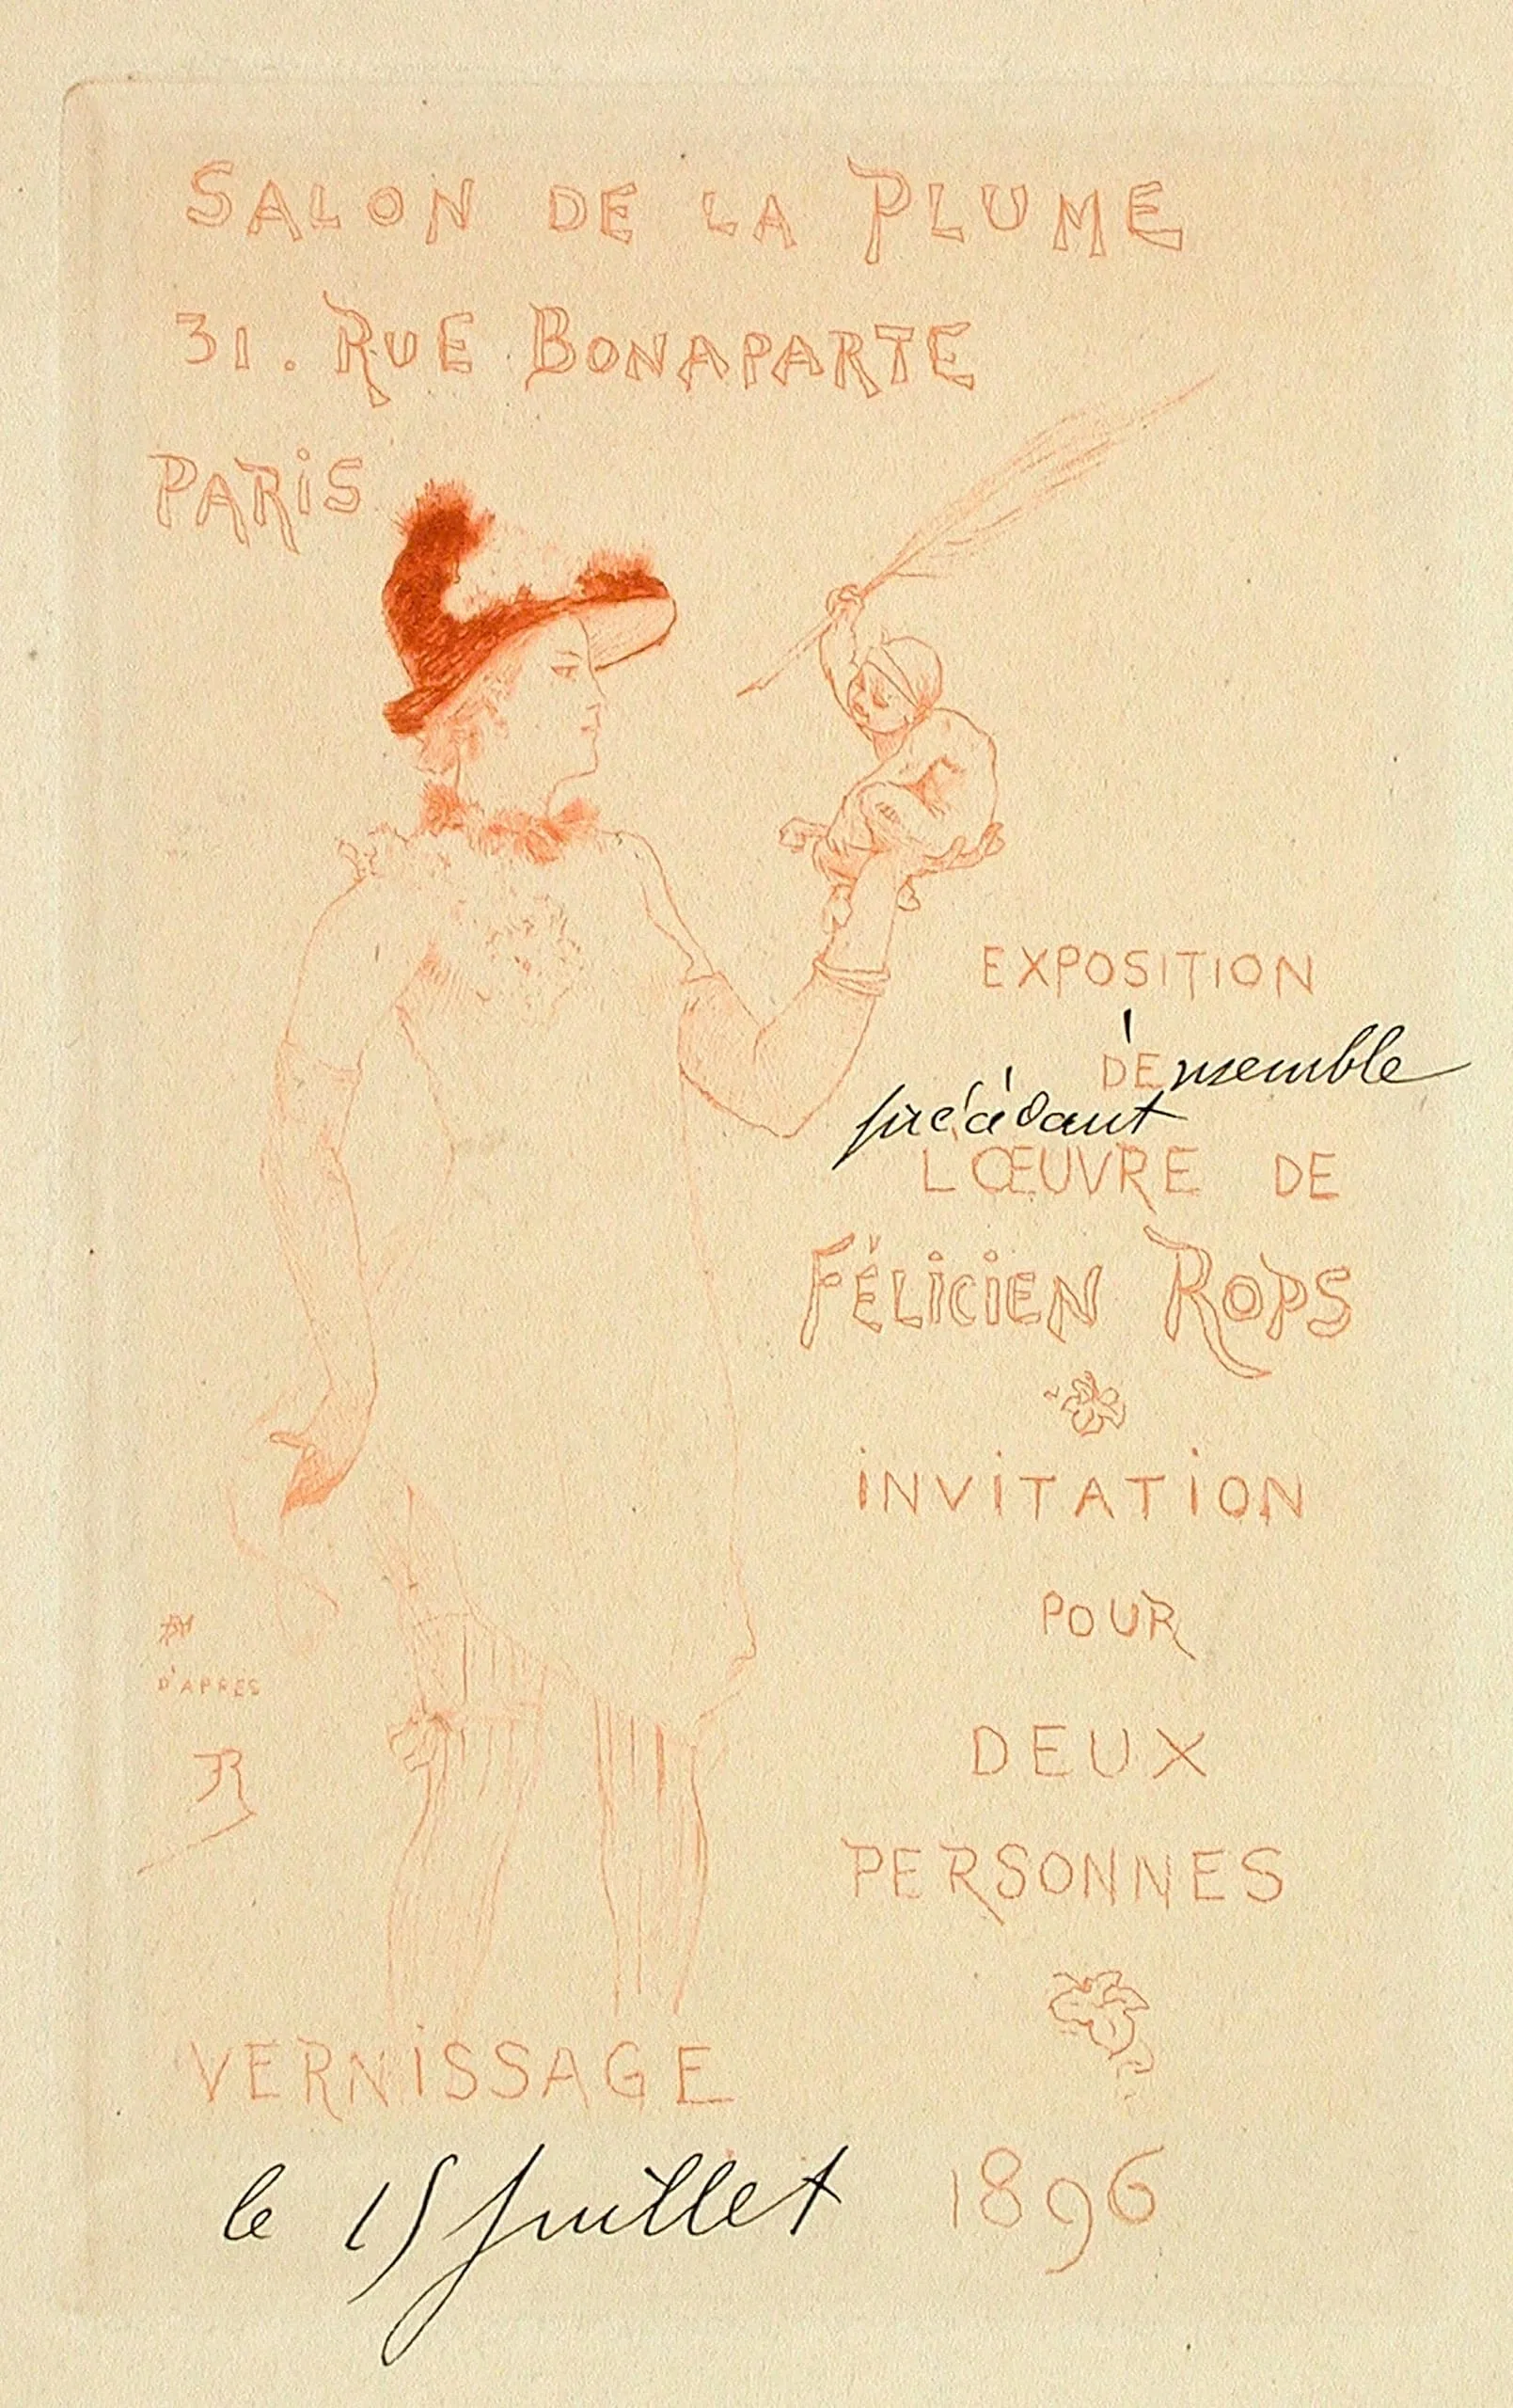 SALON DE LA PLUME
31. RUE BONAPARTE
PARIS
EXPOSITION
D'Ensemble
précédant
L'ŒUVRE DE
FÉLICIEN ROPS
INVITATION
POUR
DEUX
PERSONNES
D'APRES
VERNISSAGE
le 15 Juillet 1896